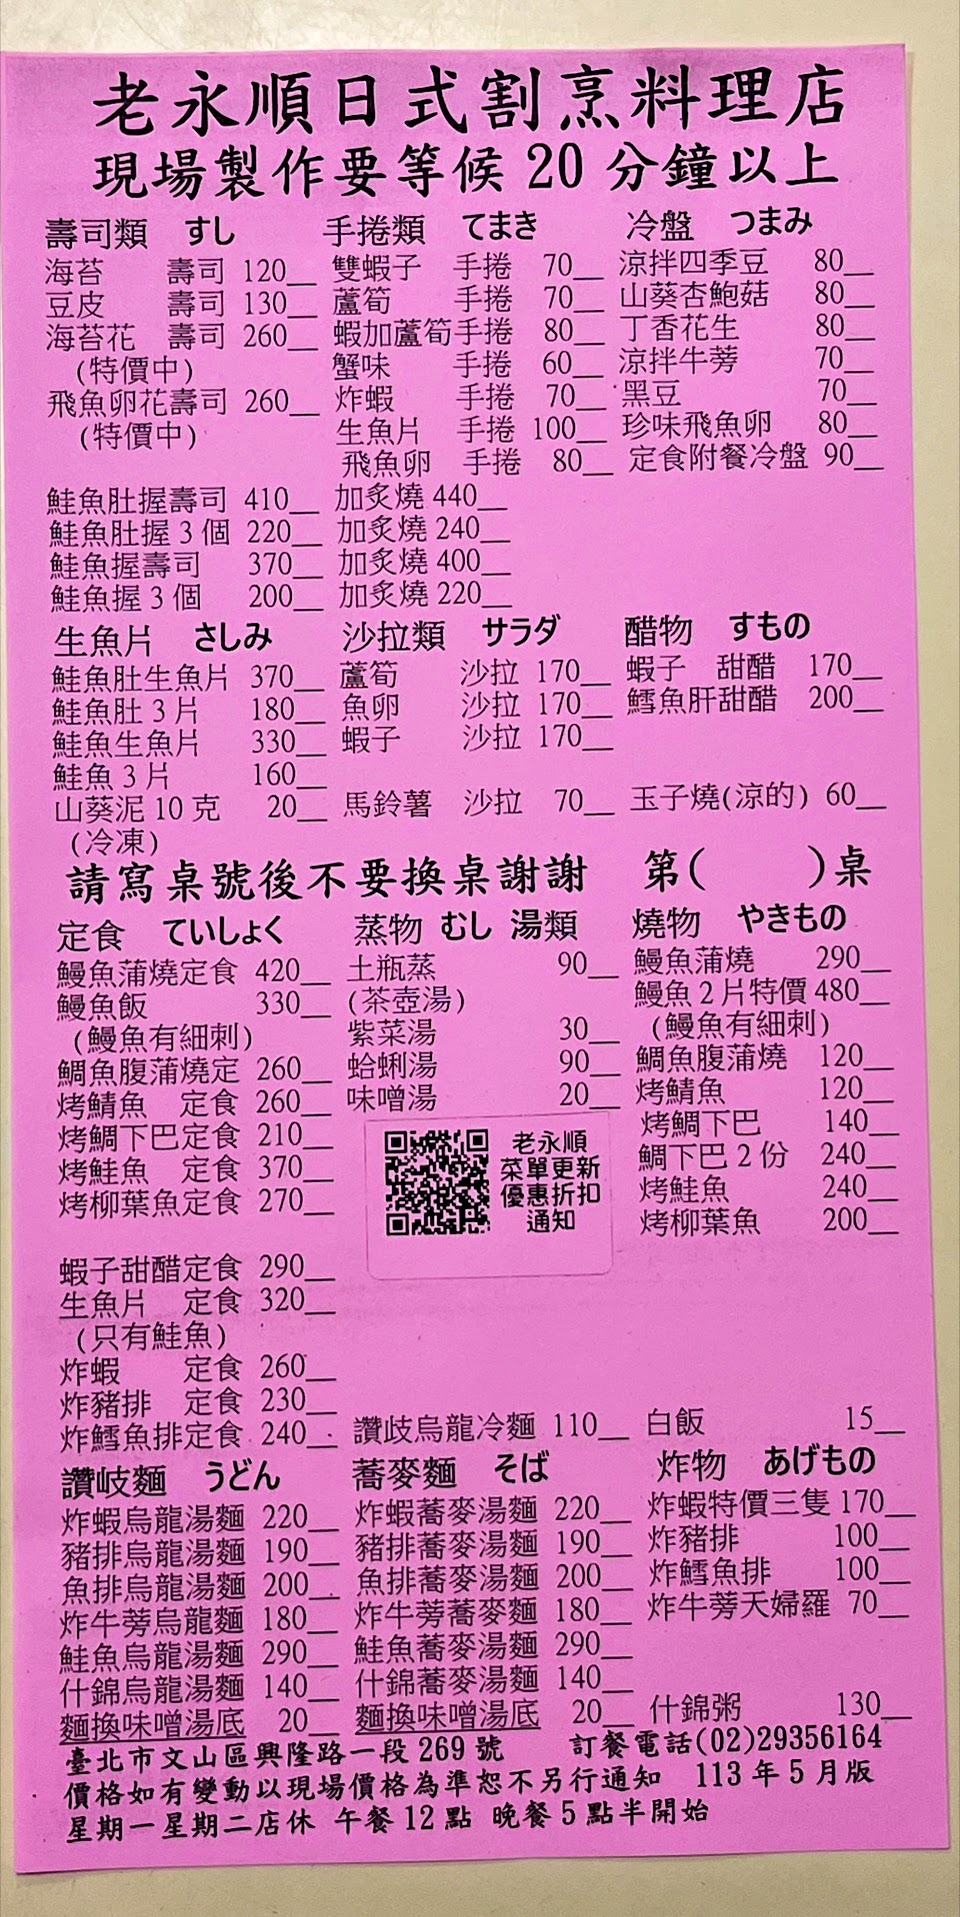 老永順日式割烹料理店
現場製作要等候20分鐘以上
壽司類 すし
海苔 壽司 120__
豆皮 壽司 130__
海苔花 壽司 260__
(特價中)
飛魚卵花壽司 260__
(特價中)
手捲類 てまき
雙蝦子 手捲 70__
蘆筍 手捲 70__
蝦加蘆筍手捲 80__
蟹味 手捲 60__
炸蝦 手捲 70__
生魚片 手捲 100__
飛魚卵 手捲 80__
冷盤 つまみ
涼拌四季豆 80__
山葵杏鮑菇 80__
丁香花生 80__
涼拌牛蒡 70__
黑豆 70__
珍味飛魚卵 80__
定食附餐冷盤 90__
鮭魚肚握壽司 410__ 加炙燒 440__
鮭魚肚握3個 220__ 加炙燒 240__
鮭魚握壽司 370__ 加炙燒 400__
鮭魚握3個 200__ 加炙燒 220__
生魚片 さしみ
鮭魚肚生魚片 370__
鮭魚肚3片 180__
鮭魚生魚片 330__
鮭魚3片 160__
山葵泥10克 20__
(冷凍)
沙拉類 サラダ
蘆筍 沙拉 170__
魚卵 沙拉 170__
蝦子 沙拉 170__
馬鈴薯 沙拉 70__
醋物 すもの
蝦子 甜醋 170__
鱈魚肝甜醋 200__
玉子燒(涼的) 60__
請寫桌號後不要換桌謝謝 第( )桌
定食 ていしょく
鰻魚蒲燒定食 420__
鰻魚飯 330__
(鰻魚有細刺)
鯛魚腹蒲燒定 260__
烤鯖魚 定食 260__
烤鯛下巴定食 210__
烤鮭魚 定食 370__
烤柳葉魚定食 270__
蝦子甜醋定食 290__
生魚片 定食 320__
(只有鮭魚)
炸蝦 定食 260__
炸豬排 定食 230__
炸鱈魚排定食 240__
蒸物 むし 湯類
土瓶蒸 90__
(茶壺湯)
紫菜湯 30__
蛤蜊湯 90__
味噌湯 20__
老永順
菜單更新
優惠折扣
通知
燒物 やきもの
鰻魚蒲燒 290__
鰻魚2片特價 480__
(鰻魚有細刺)
鯛魚腹蒲燒 120__
烤鯖魚 120__
烤鯛下巴 140__
鯛下巴2份 240__
烤鮭魚 240__
烤柳葉魚 200__
讚歧烏龍冷麵 110__
白飯 15__
讚岐麵 うどん
炸蝦烏龍湯麵 220__
豬排烏龍湯麵 190__
魚排烏龍湯麵 200__
炸牛蒡烏龍麵 180__
鮭魚烏龍湯麵 290__
什錦烏龍湯麵 140__
麵換味噌湯底 20__
蕎麥麵 そば
炸蝦蕎麥湯麵 220__
豬排蕎麥湯麵 190__
魚排蕎麥湯麵 200__
炸牛蒡蕎麥麵 180__
鮭魚蕎麥湯麵 290__
什錦蕎麥湯麵 140__
麵換味噌湯底 20__
炸物 あげもの
炸蝦特價三隻 170__
炸豬排 100__
炸鱈魚排 100__
炸牛蒡天婦羅 70__
什錦粥 130__
臺北市文山區興隆路一段269號 訂餐電話(02)29356164
價格如有變動以現場價格為準恕不另行通知 113年5月版
星期一星期二店休 午餐12點 晚餐5點半開始